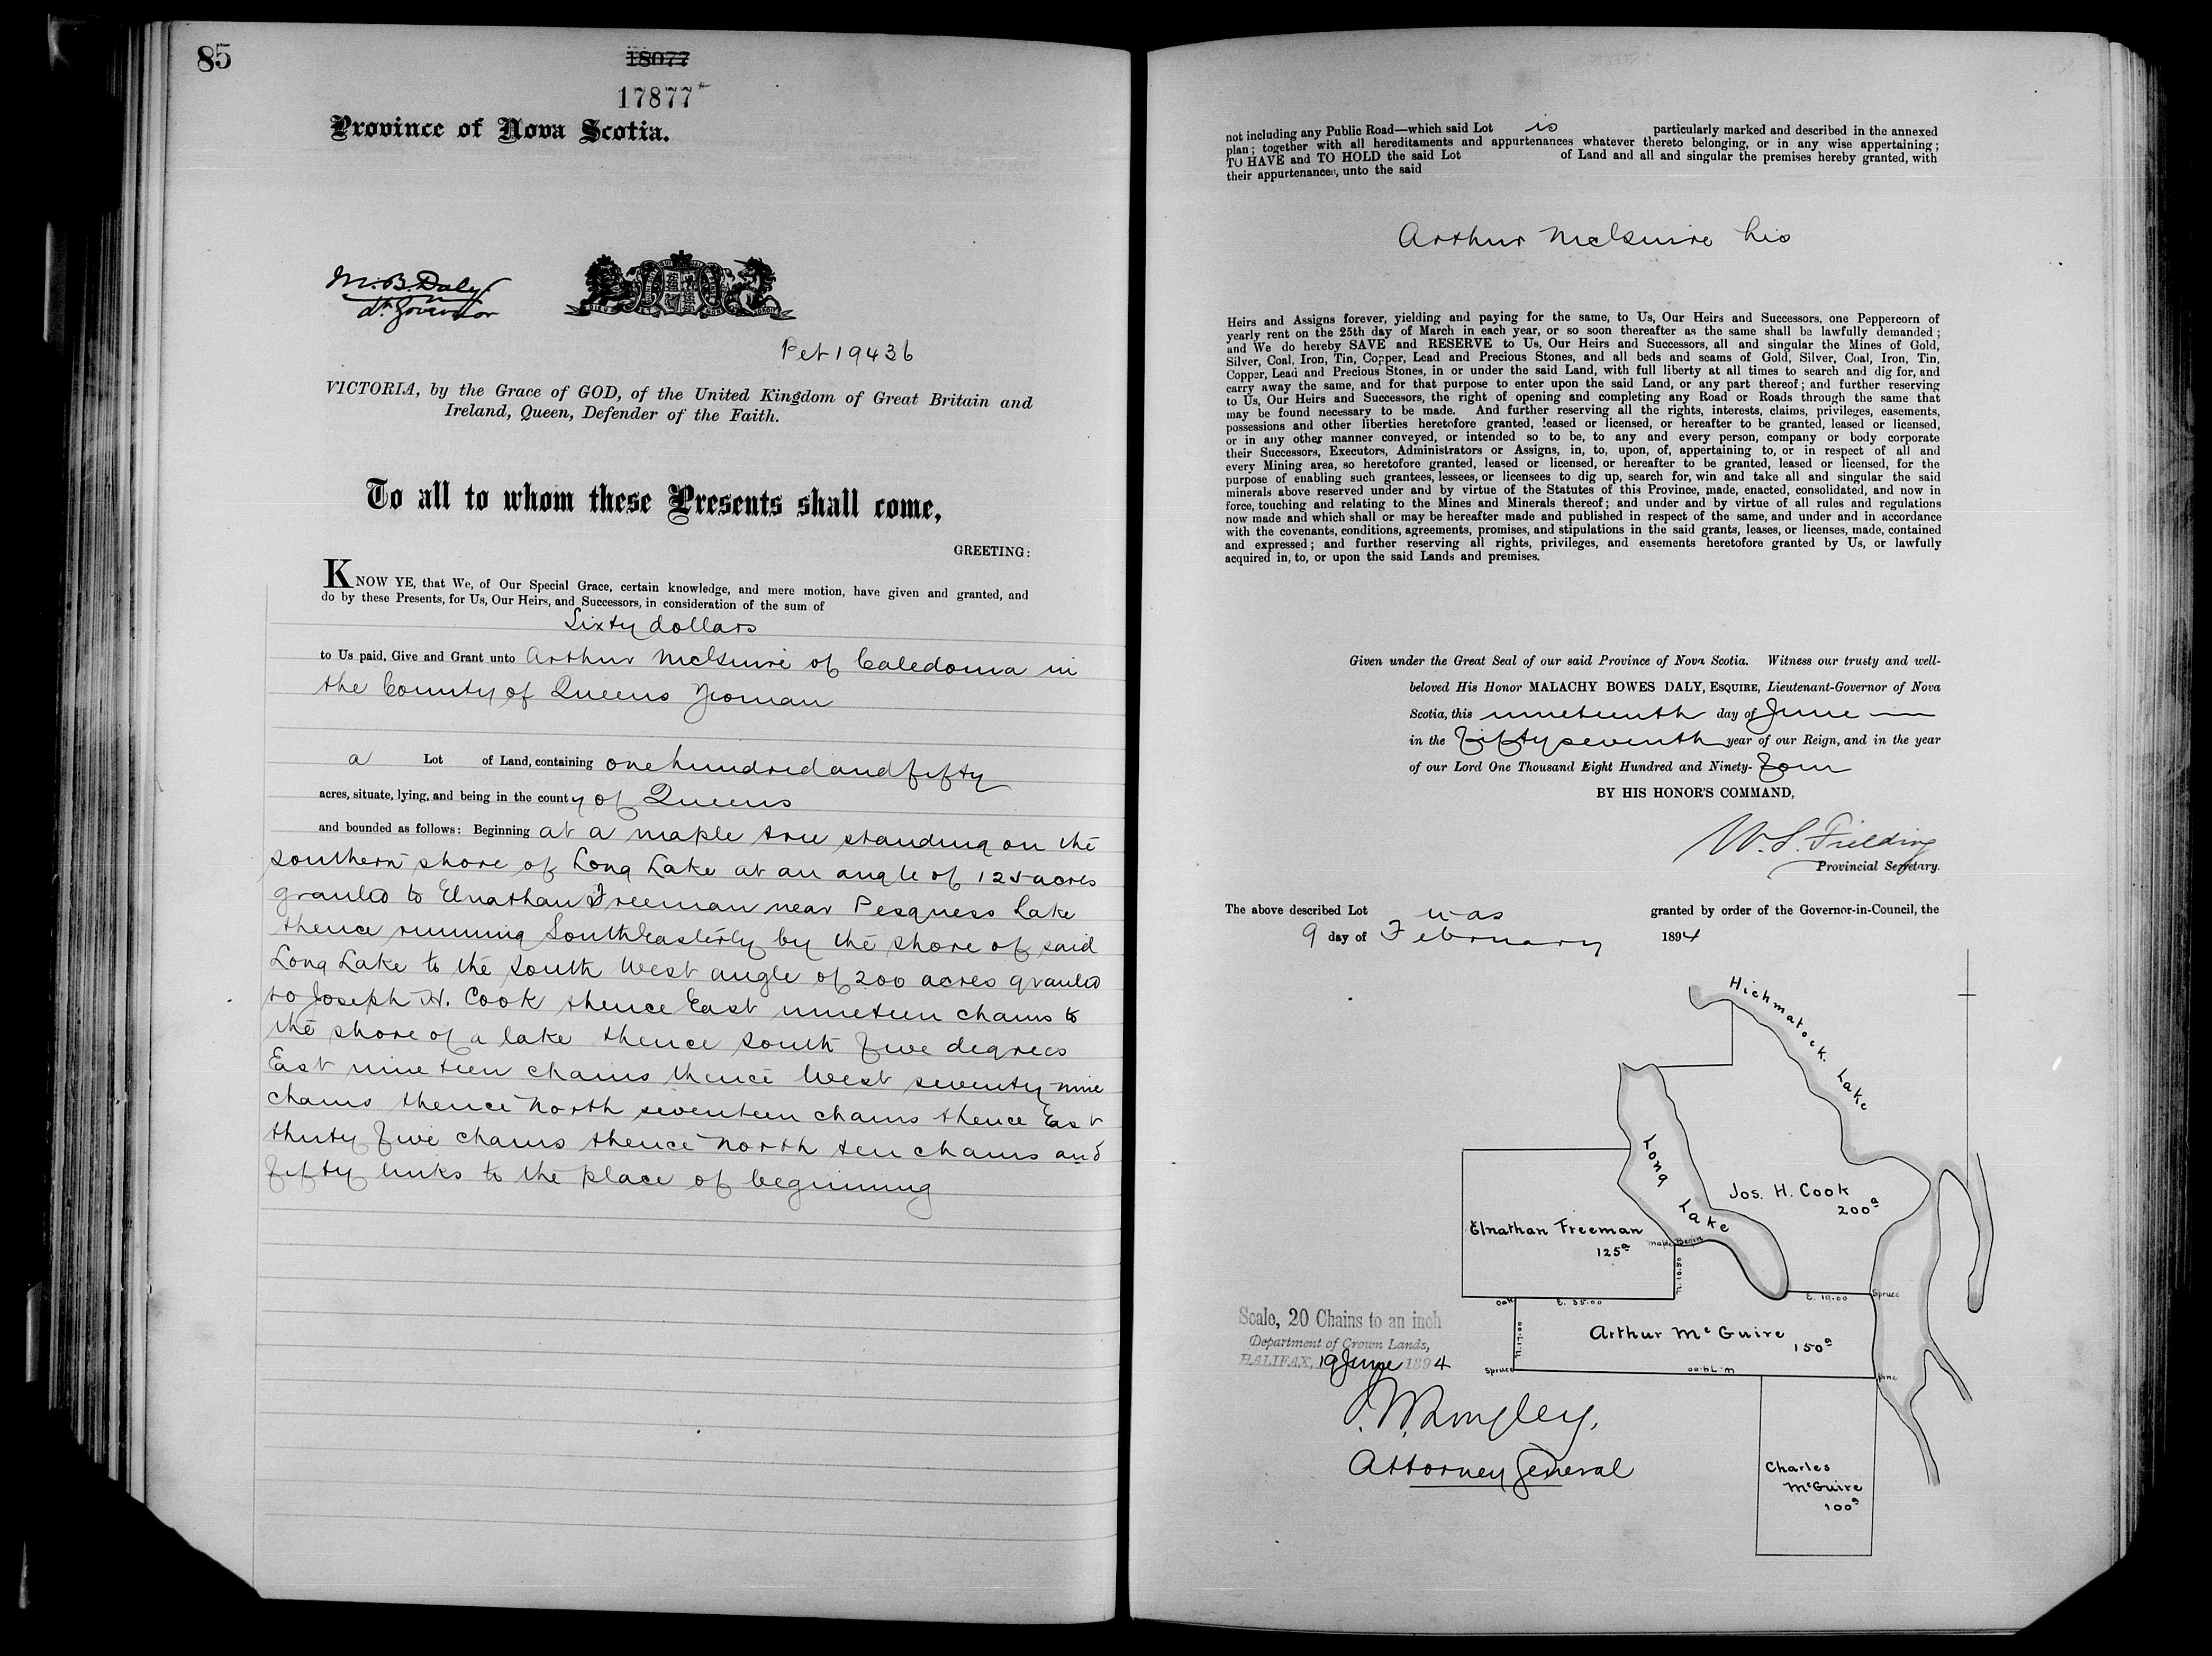 85
18077
17877
Province of Nova Scotia.
M. B. Daly
Lt Governor
Pet 19436
VICTORIA, by the Grace of GOD, of the United Kingdom of Great Britain and
Ireland, Queen, Defender of the Faith.
To all to whom these Presents shall come,
GREETING:
KNOW YE, that We, of Our Special Grace, certain knowledge, and mere motion, have given and granted, and
do by these Presents, for Us, Our Heirs, and Successors, in consideration of the sum of
Sixty dollars
to Us paid, Give and Grant unto Arthur McGuire of Caledonia in
the County of Queens Yeoman
a Lot of Land, containing one hundred and fifty
acres, situate, lying, and being in the county of Queens
and bounded as follows: Beginning at a maple tree standing on the
southern shore of Long Lake at an angle of 125 acres
granted to Elnathan Freeman near Pesquess Lake
thence running South Easterly by the shore of said
Long Lake to the South West angle of 200 acres granted
to Joseph H. Cook thence East nineteen chains to
the shore of a lake thence South five degrees
East nineteen chains thence West seventy nine
chains thence North seventeen chains thence East
thirty five chains thence North ten chains and
fifty links to the place of beginning
not including any Public Road—which said Lot is particularly marked and described in the annexed
plan; together with all hereditaments and appurtenances whatever thereto belonging, or in any wise appertaining;
TO HAVE and TO HOLD the said Lot of Land and all and singular the premises hereby granted, with
their appurtenances, unto the said
Arthur McGuire his
Heirs and Assigns forever, yielding and paying for the same, to Us, Our Heirs and Successors, one Peppercorn of
yearly rent on the 25th day of March in each year, or so soon thereafter as the same shall be lawfully demanded;
and We do hereby SAVE and RESERVE to Us, Our Heirs and Successors, all and singular the Mines of Gold,
Silver, Coal, Iron, Tin, Copper, Lead and Precious Stones, and all beds and seams of Gold, Silver, Coal, Iron, Tin,
Copper, Lead and Precious Stones, in or under the said Land, with full liberty at all times to search and dig for, and
carry away the same, and for that purpose to enter upon the said Land, or any part thereof; and further reserving
to Us, Our Heirs and Successors, the right of opening and completing any Road or Roads through the same that
may be found necessary to be made. And further reserving all the rights, interests, claims, privileges, easements,
possessions and other liberties heretofore granted, leased or licensed, or hereafter to be granted, leased or licensed,
or in any other manner conveyed, or intended so to be, to any and every person, company or body corporate
their Successors, Executors, Administrators or Assigns, in, to, upon, of, appertaining to, or in respect of all and
every Mining area, so heretofore granted, leased or licensed, or hereafter to be granted, leased or licensed, for the
purpose of enabling such grantees, lessees, or licensees to dig up, search for, win and take all and singular the said
minerals above reserved under and by virtue of the Statutes of this Province, made, enacted, consolidated, and now in
force, touching and relating to the Mines and Minerals thereof; and under and by virtue of all rules and regulations
now made and which shall or may be hereafter made and published in respect of the same, and under and in accordance
with the covenants, conditions, agreements, promises, and stipulations in the said grants, leases, or licenses, made, contained
and expressed; and further reserving all rights, privileges, and easements heretofore granted by Us, or lawfully
acquired in, to, or upon the said Lands and premises.
Given under the Great Seal of our said Province of Nova Scotia. Witness our trusty and well-
beloved His Honor MALACHY BOWES DALY, ESQUIRE, Lieutenant-Governor of Nova
Scotia, this nineteenth day of June
in the fifty seventh year of our Reign, and in the year
of our Lord One Thousand Eight Hundred and Ninety-four
BY HIS HONOR'S COMMAND,
W. S. Fielding
Provincial Secretary.
The above described Lot was granted by order of the Governor-in-Council, the
9 day of February 1894
Hichmatock Lake
Long Lake
Jos. H. Cook
200a
Elnathan Freeman
125a
maple Begin
N. 10.50
Oak
E. 35.00
E. 19.00
Spruce
Scale, 20 Chains to an inch
Department of Crown Lands,
HALIFAX, 19 June 1894
N. 17.00
Arthur McGuire
150a
Spruce
W. 79.00
Pine
J. W. Longley,
Attorney General
Charles
McGuire
100a